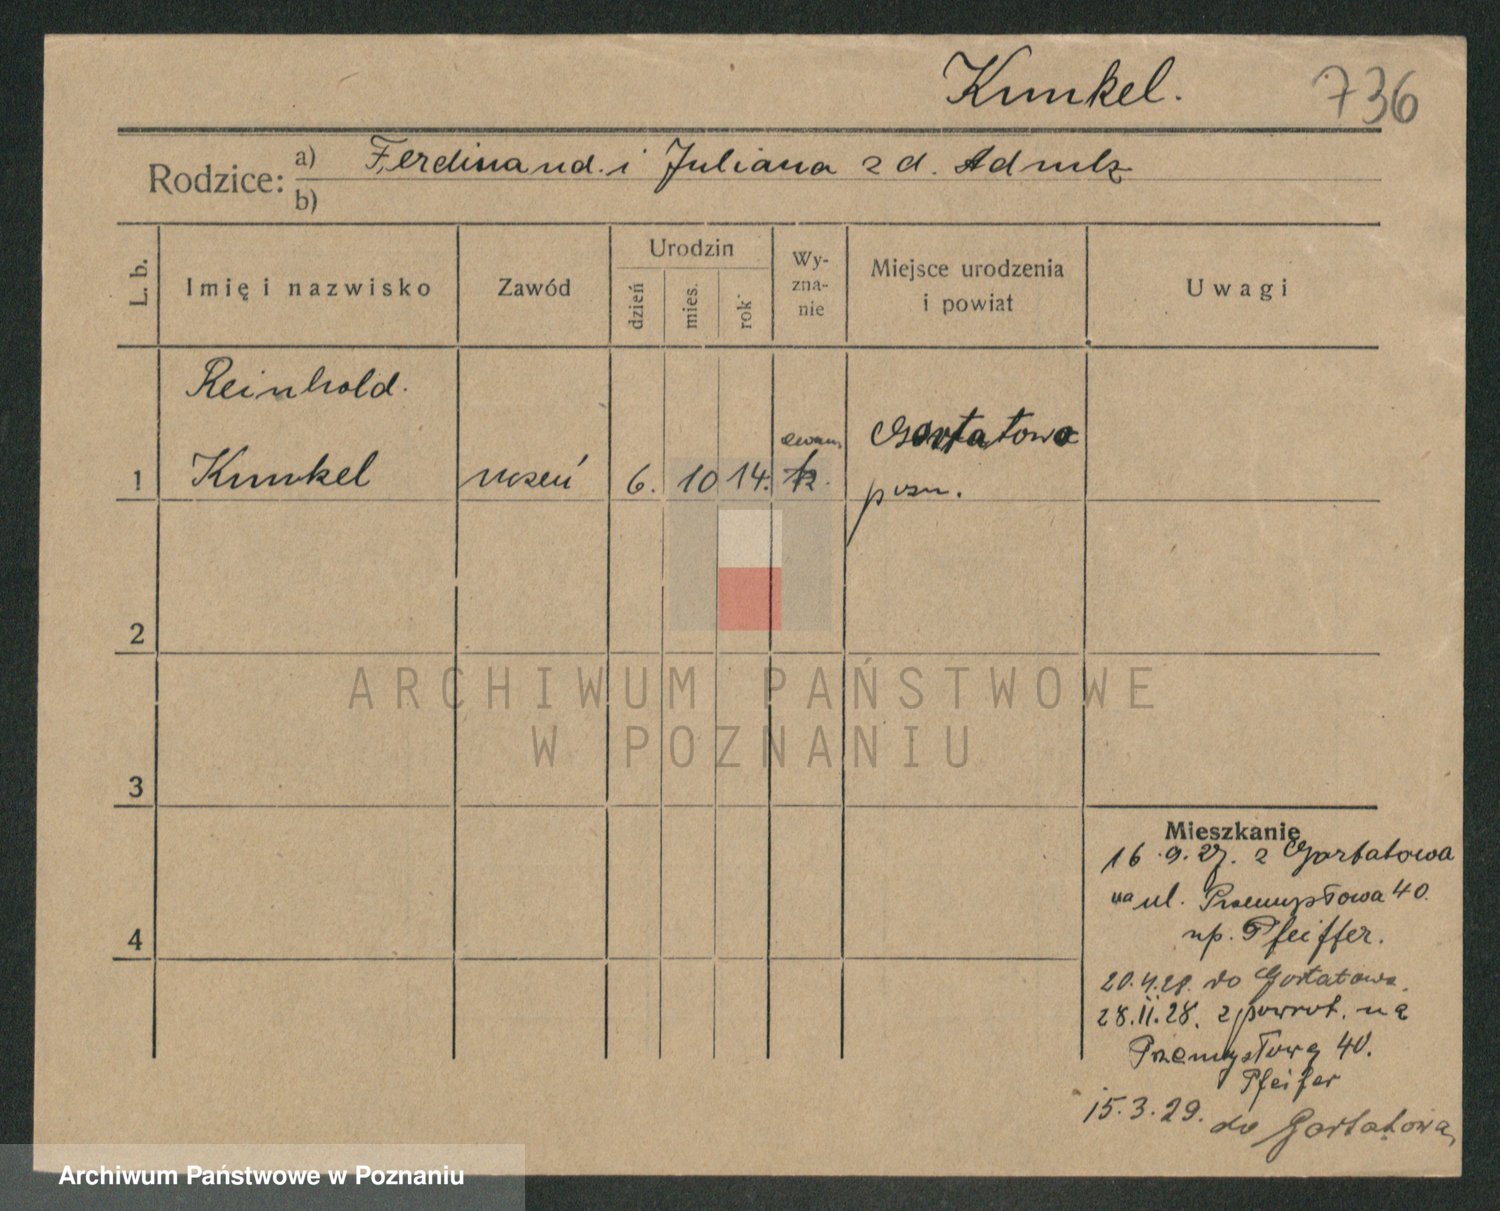 Kunkel.
736
Rodzice:
a) Ferdinand. i Juliana z d. Adm
b)
L. b.
Imię i nazwisko
Zawód
Urodzin
dzień
mies.
rok
Wy-
zna-
nie
Miejsce urodzenia
i powiat
Uwagi
Reinhold.
1 Kunkel
uczeń
6. 10 14.
ewan.
Gortatowo
pozn.
2
3
4
ARCHIWUM PAŃSTWOWE
W POZNANIU
Mieszkanie
16.9.27. z Gortatowa
na ul. Przemysłowa 40.
up. Pfeiffer.
20.4.28. do Gortatowa.
28.11.28. z powrot. na
Przemysłową 40.
Pfeifer
15.3.29. do Gortatowa,
Archiwum Państwowe w Poznaniu